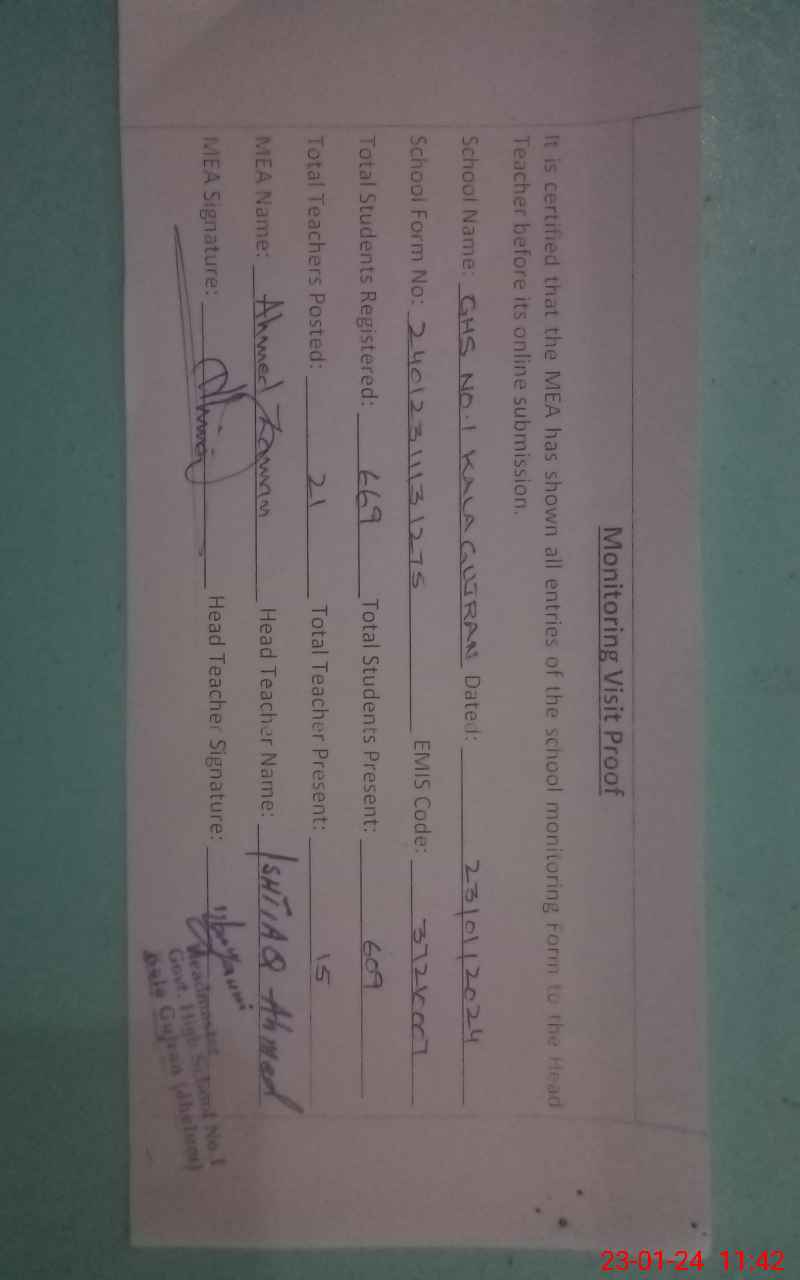 Monitoring Visit Proof
It is certified that the MEA has shown all entries of the school monitoring Form to the Head
Teacher before its online submission.
School Name: GHS NO.1 KALA GUJRAN Dated: 23/01/2024
School Form No: 24012311131275 EMIS Code:
Total Students Registered: 669 Total Students Present: 609
Total Teachers Posted: 21 Total Teacher Present: 15
MEA Name: Ahmed Head Teacher Name: ISHTIAQ Ahmed
MEA Signature: Head Teacher Signature:
Headmaster
Govt. High School No.1
Kala Gujran (Jhelum)
23-01-24 11:42